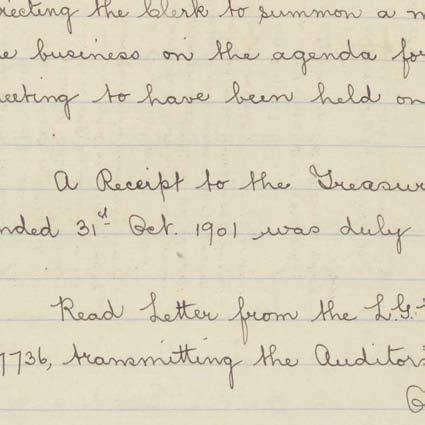 recting the Clerk to summon a m
e business on the agenda for
eeting to have been held on
A Receipt to the Treasur
nded 31st Oct. 1901 was duly
Read Letter from the L.G.
7736, transmitting the Auditors